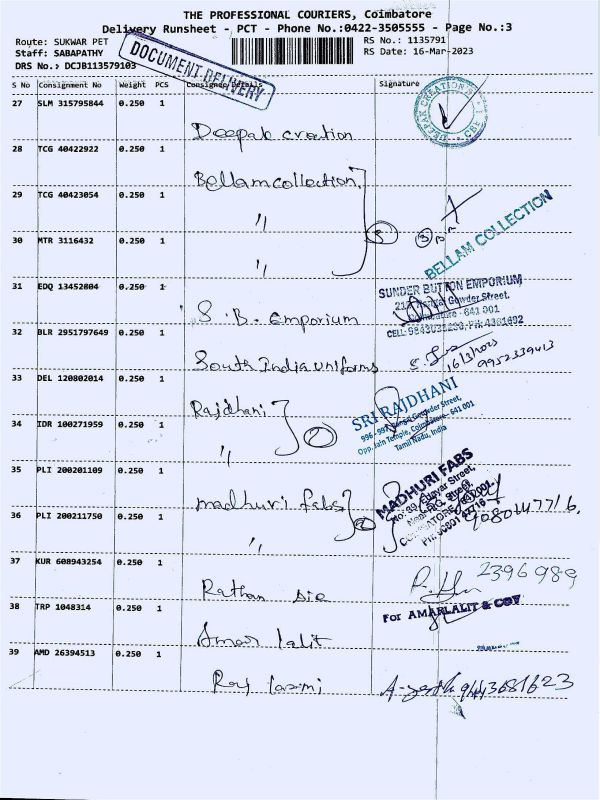 THE PROFESSIONAL COURIERS, Coimbatore
Delivery Runsheet - PCT - Phone No.:0422-3505555 - Page No.:3
Route: SUKWAR PET RS No.: 1135791
Staff: SABAPATHY RS Date: 16-Mar-2023
DRS No.: DCJB113579103
DOCUMENT DELIVERY
S No Consignment No Weight PCS Consignee Details Signature
27 SLM 315795844 0.250 1
Deepak creation
DEEPAK CREATION CBE
28 TCG 40422922 0.250 1
Bellam collection
29 TCG 40423054 0.250 1
"
BELLAM COLLECTION
30 MTR 3116432 0.250 1
"
3
31 EDQ 13452804 0.250 1
S. B. Emporium
SUNDER BUTTON EMPORIUM
Gowder Street,
641 001
32 BLR 2951797649 0.250 1
South India uniforms
16/3/2023
9952339413
33 DEL 120802014 0.250 1
Rajdhani
SRI RAJDHANI
34 IDR 100271959 0.250 1
"
2
Gowder Street,
Opp. Jain Temple, Coimbatore - 641 001
Tamil Nadu, India
35 PLI 200201109 0.250 1
madhuri fabs
MADHURI FABS
36 PLI 200211750 0.250 1
"
2
37 KUR 608943254 0.250 1
2396989
38 TRP 1048314 0.250 1
Amar lalit
For AMARLALIT & COY
39 AMD 26394513 0.250 1
Raj laxmi